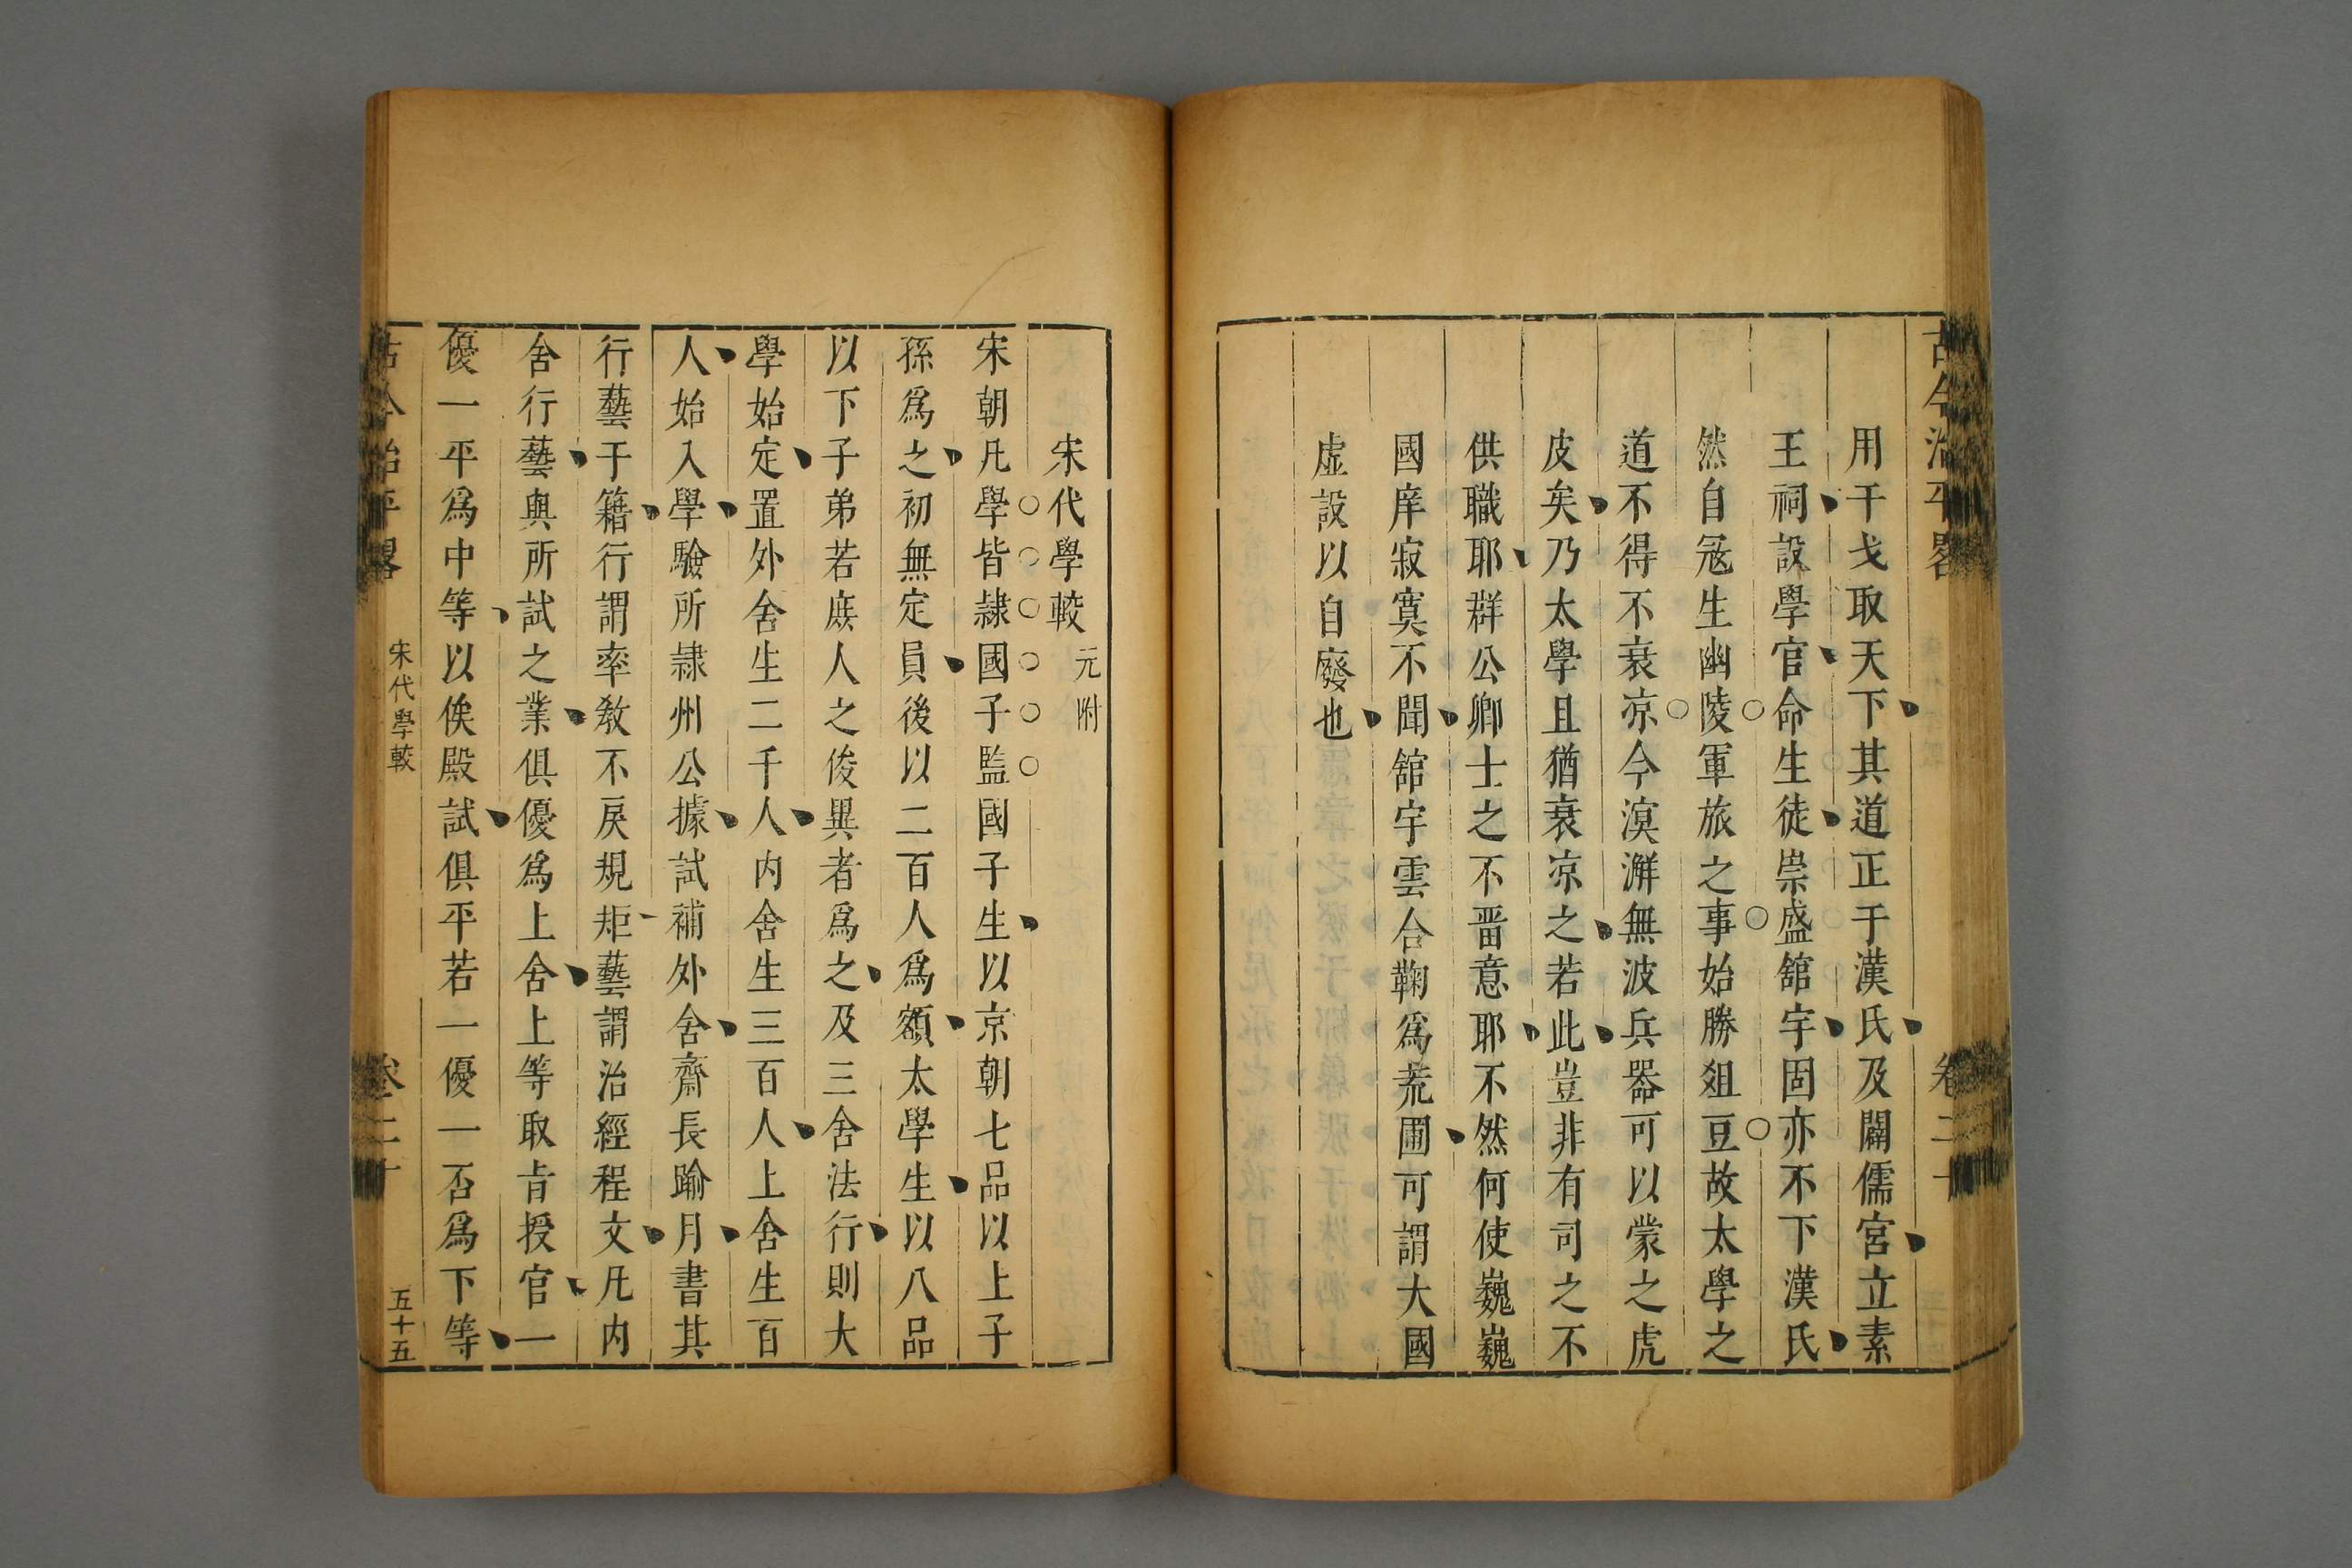 古今治平畧 卷二十
用干戈取天下其道正于漢氏及闢儒宮立素
王祠設學官命生徒崇盛舘宇固亦不下漢氏
然自冦生幽陵軍旅之事始勝爼豆故太學之
道不得不衰凉今溟澥無波兵器可以蒙之虎
皮矣乃太學且猶衰凉之若此豈非有司之不
供職耶群公卿士之不畱意耶不然何使巍巍
國庠寂寞不聞舘宇雲合鞠爲荒圃可謂大國
虛設以自廢也
宋代學較 元附
宋朝凡學皆隷國子監國子生以京朝七品以上子
孫爲之初無定員後以二百人爲額太學生以八品
以下子弟若庶人之俊異者爲之及三舍法行則大
學始定置外舍生二千人内舍生三百人上舍生百
人始入學驗所隷州公據試補外舍齋長踰月書其
行藝于籍行謂率敎不戾規矩藝謂治經程文凡内
舍行藝與所試之業俱優爲上舍上等取旨授官一
優一平爲中等以俟殿試俱平若一優一否爲下等
古今治平畧 宋代學較 卷二十 五十五